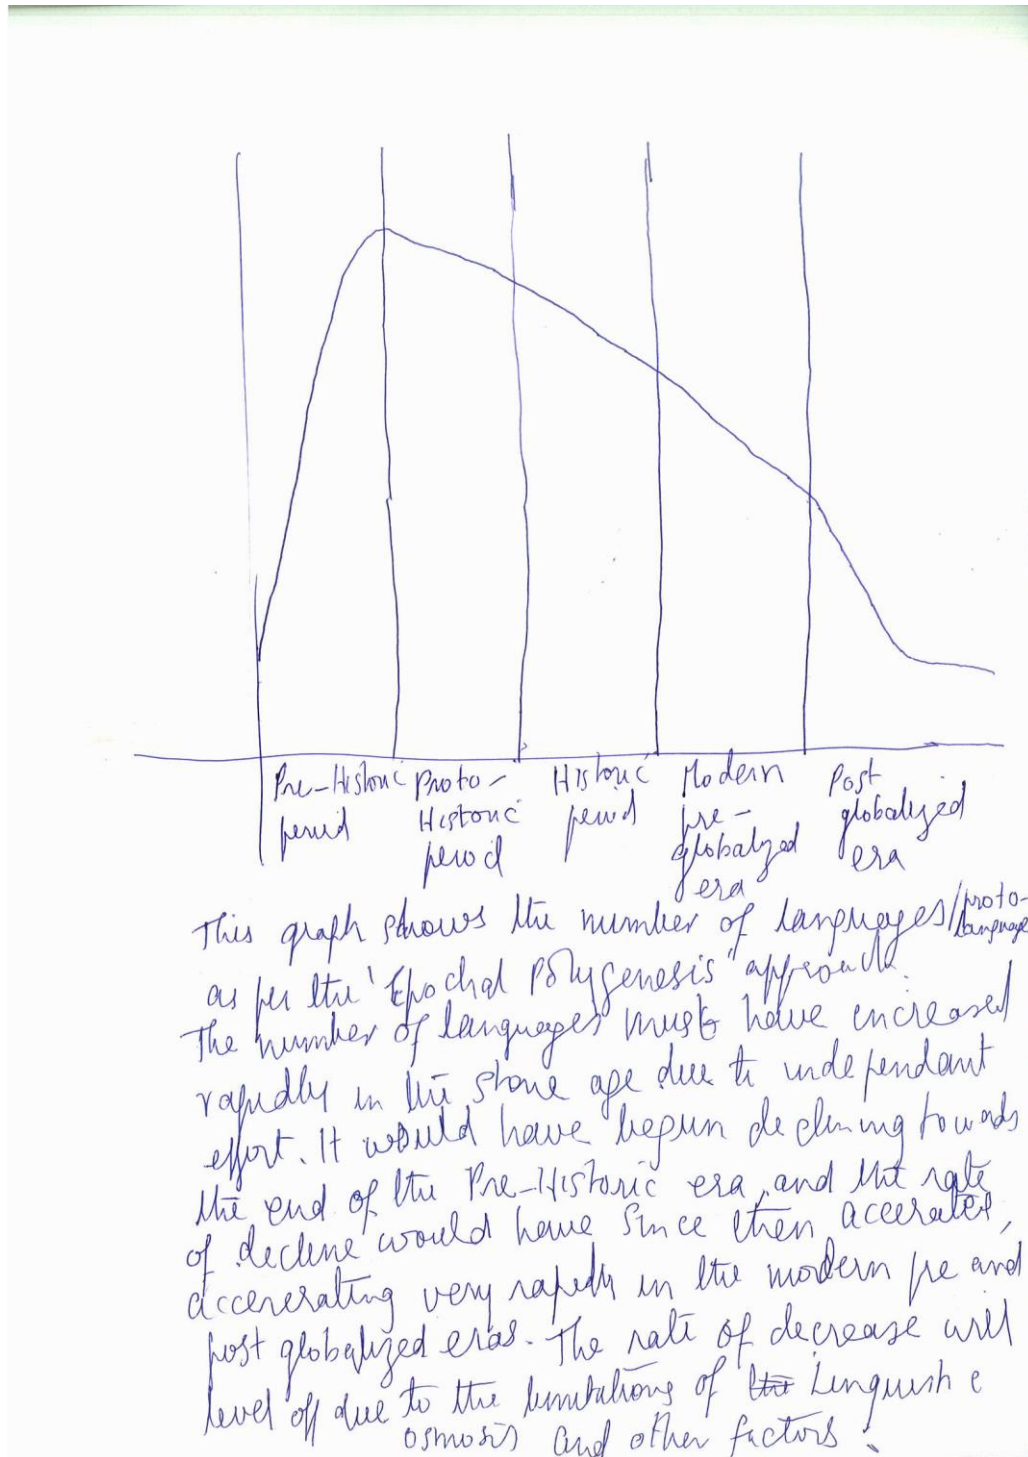 Pre-Historic period
Proto-Historic period
Historic period
Modern pre-globalized era
Post globalized era
This graph shows the number of languages/proto-language
as per the 'Epochal Polygenesis' approach.
The number of languages must have increased
rapidly in the stone age due to independant
effort. It would have begun declining towards
the end of the Pre-Historic era, and the rate
of decline would have since then accerated,
accererating very rapidly in the modern pre and
post globalized eras. The rate of decrease will
level off due to the limitations of Linguistic
osmosis and other factors.